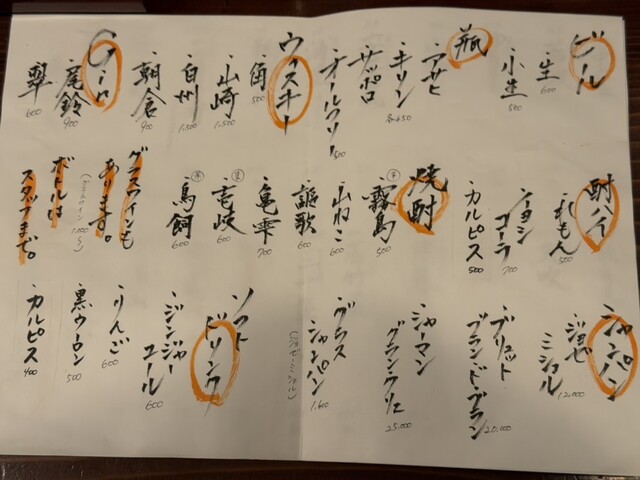 ビール
・生
600
・小生
500
瓶
・アサヒ
・キリン
各650
・サッポロ
・オールフリー
500
ウィスキー
・角
500
・山崎
1,500
・白州
1,500
・朝倉
900
Gin
・尾鈴
900
・翠
600
酎ハイ
・れもん
500
・シーヨン
コーラ
700
・カルピス
500
焼酎
・霧島
芋
500
・山ねこ
600
・謳歌
600
・亀雫
700
・壱岐
麦
600
・鳥飼
米
600
グラスワインも
あります。
(グラスワイン 1,000〜)
ボトルは
スタッフまで。
シャンパン
・ジョゼ
ミシェル
12.000
・ブリュット
ブランド・ブラン
20.000
・シャーマン
グランクリュ
25.000
・グラス
シャンパン
1.600
(ジョゼ・ミシェル)
ソフト
ドリンク
・ジンジャー
エール
600
・りんご
600
・黒ウーロン
500
・カルピス
400